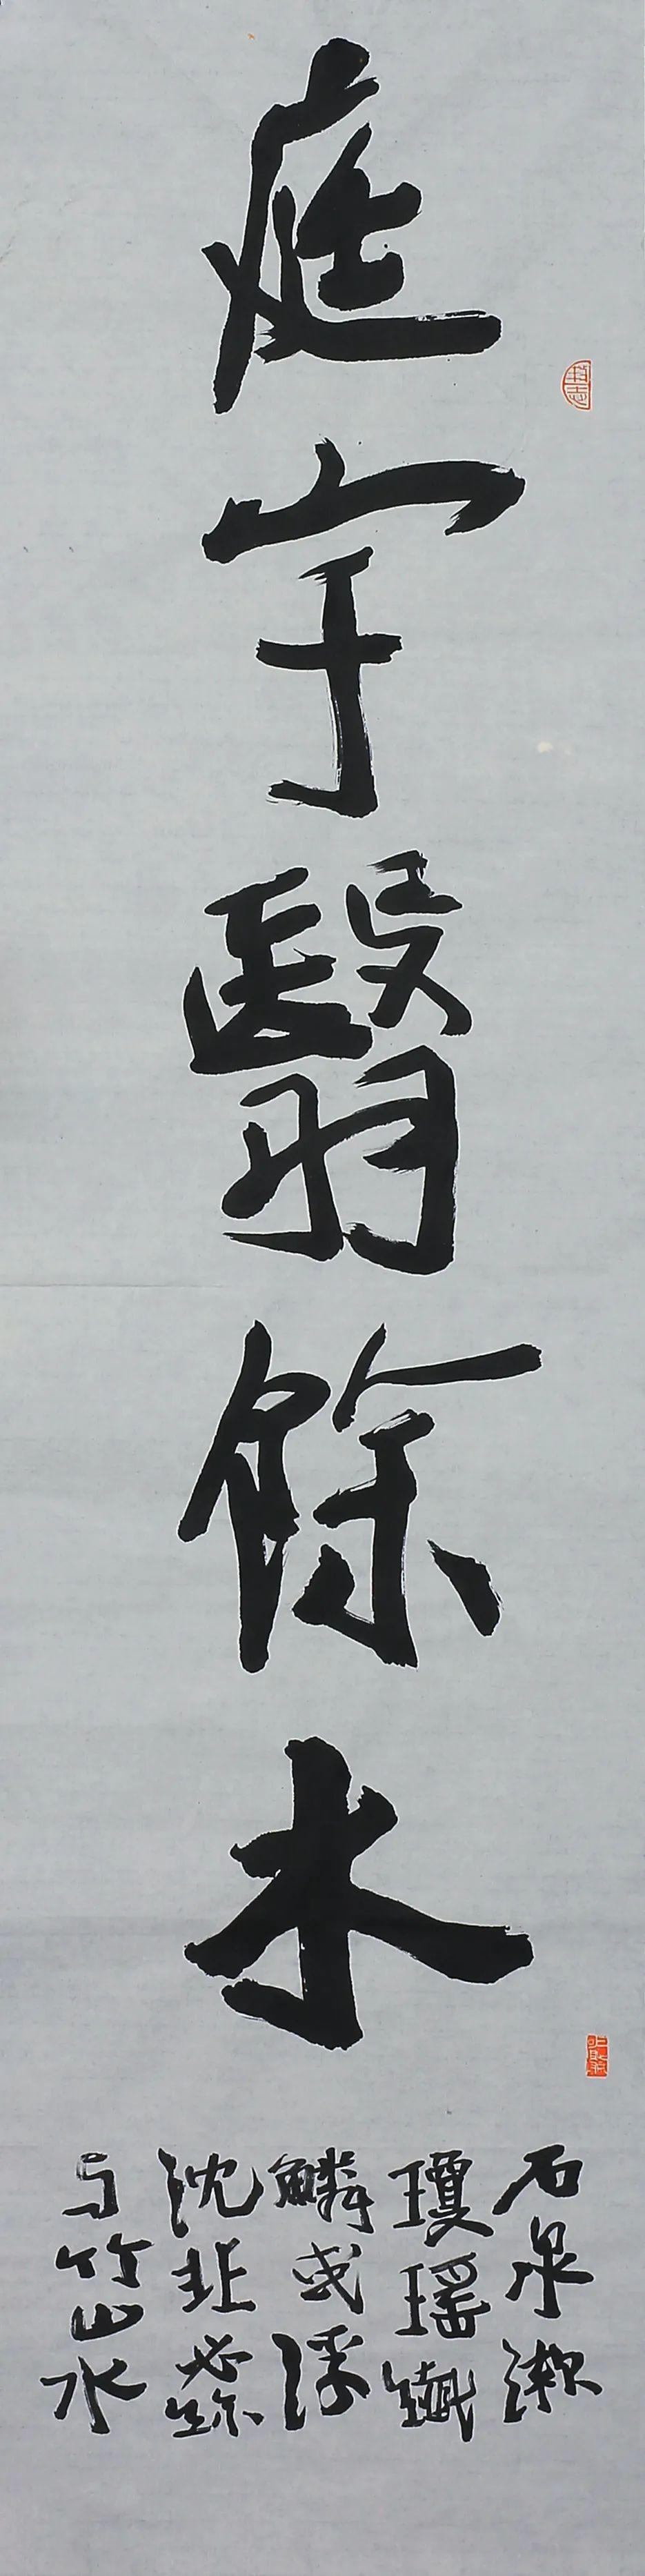 庭宇翳餘木
石泉漱
瓊瑤纖
鱗或浮
沈非必絲
与竹山水